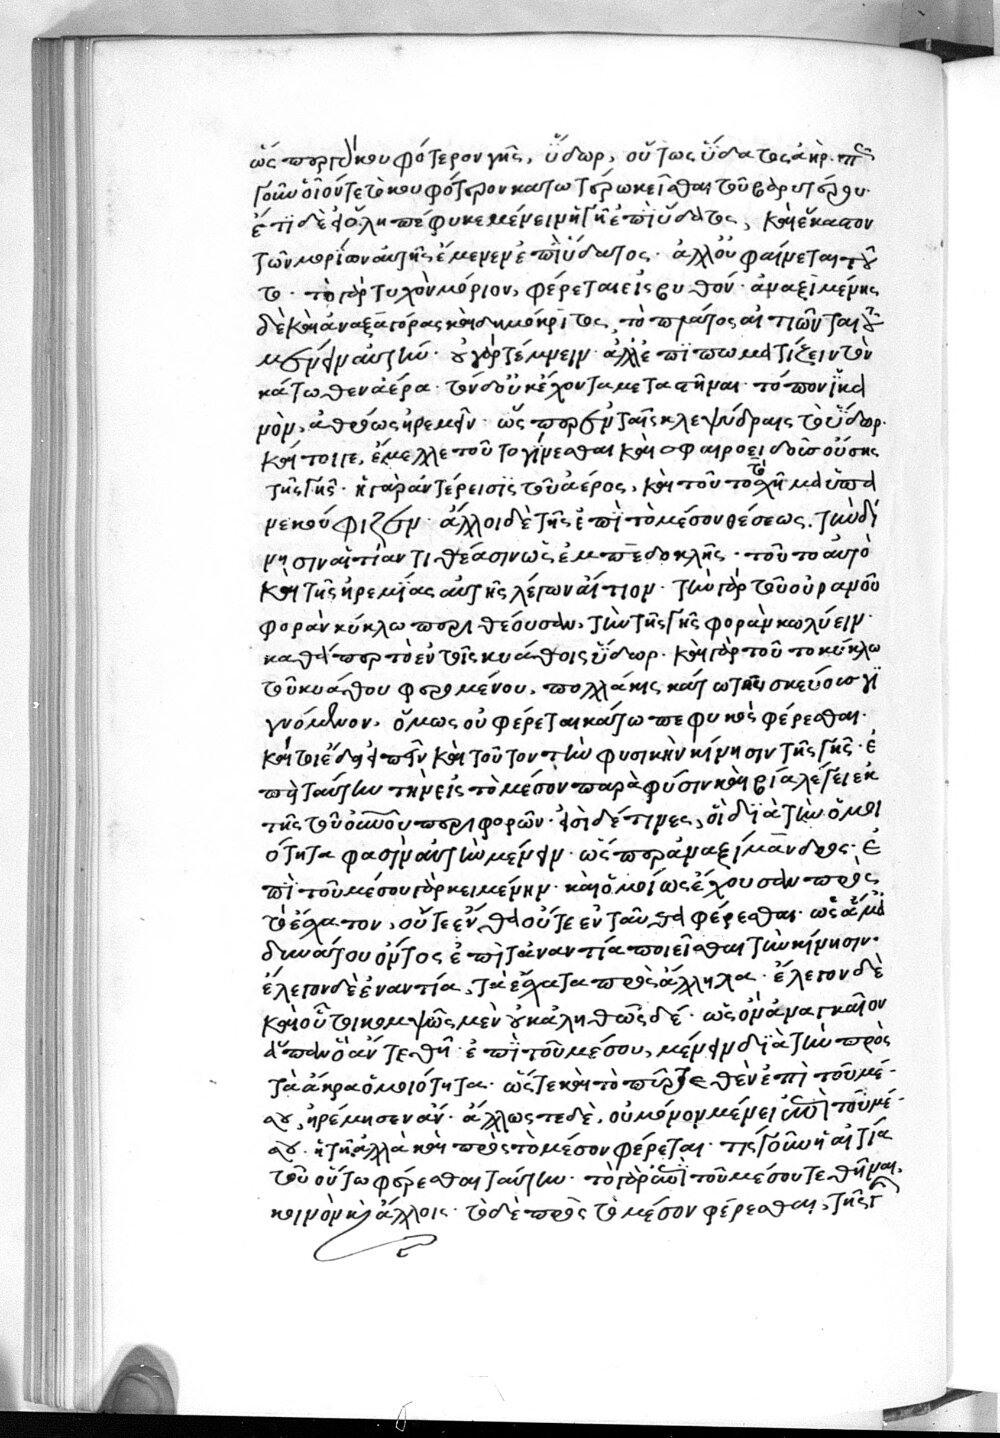 ὥσπερ γὰρ κουφότερον γῆς, ὕδωρ, οὕτως ὕδατος ἀήρ. πῶς
γοῦν οἷόν τε τὸ κουφότερον κατωτέρω κεῖσθαι τοῦ βαρυτέρου.
ἔτι δὲ εἰ ὅλη πέφυκε μένειν ἡ γῆ ἐπὶ ὕδατος, καὶ ἕκαστον
τῶν μορίων αὐτῆς ἔμενεν ἐπὶ ὕδατος. ἀλλ' οὐ φαίνεται τοῦ
το. τὸ γὰρ τυχὸν μόριον, φέρεται εἰς βυθόν. ἀναξιμένης
δὲ καὶ ἀναξαγόρας καὶ δημόκριτος, τὸ πλάτος αἰτιῶνται τοῦ
μένειν αὐτήν. οὐ γὰρ τέμνειν. ἀλλ' ἐπιπωματίζειν τὸν
κάτωθεν ἀέρα. τὸν δ' οὐκ ἔχοντα μεταστῆναι τόπον ἱκα
νὸν, ἀθρόως ἠρεμεῖν. ὥσπερ ἐν ταῖς κλεψύδραις τὸ ὕδωρ.
καίτοιγε, ἔμελλε τοῦτο γίνεσθαι καὶ σφαιροειδοῦς οὔσης
τῆς γῆς. ἡ γὰρ ἀντέρεισις τοῦ ἀέρος, καὶ τοῦτο τὸ σχῆμα ὑπα
νεκούφιζεν. ἄλλοι δὲ τῆς ἐπὶ τὸ μέσον θέσεως, τὴν δί
νησιν αἰτίαν τιθέασιν ὡς ἐμπεδοκλῆς. τοῦτο αὐτὸ
καὶ τῆς ἠρεμίας αὐτῆς λέγων αἴτιον. τὴν γὰρ τοῦ οὐρανοῦ
φορὰν κύκλω περιθέουσαν, τὴν τῆς γῆς φορὰν κωλύειν.
καθάπερ τὸ ἐν τοῖς κυάθοις ὕδωρ. καὶ γὰρ τοῦτο κύκλω
τοῦ κυάθου φερομένου, πολλάκις κάτω τῆς σκεύους γι
γνόμενον, ὅμως οὐ φέρεται κάτω πεφυκὸς φέρεσθαι.
καίτοι ἔδει εἰπεῖν καὶ τοῦτον τὴν φυσικὴν κίνησιν τῆς γῆς. ἐ
πεὶ ταύτην τὴν εἰς τὸ μέσον παρὰ φύσιν καὶ βία λέγει ἐκ
τῆς τοῦ οὐρανοῦ περιφορῶν. εἰσὶ δέ τινες, οἳ διὰ τὴν ὁμοι
ότητα φασὶν αὐτὴν μένειν. ὥσπερ ἀναξίμανδρος. ἐ
πὶ τοῦ μέσου γὰρ κειμένην. καὶ ὁμοίως ἔχουσαν πρὸς
τὸ ἔσχατον, οὔτε ἔνθα οὔτε ἐνταῦθα φέρεσθαι. ὡς ἅμα
ἀδυνάτου ὄντος ἐπὶ τἀναντία ποιεῖσθαι τὴν κίνησιν.
ἔλεγον δὲ ἐναντία, τὰ ἔσχατα πρὸς ἄλληλα. ἔλεγον δὲ
καὶ οὗτοι κομψῶς μὲν οὐκ ἀληθῶς δέ. ὡς ὂν ἀναγκαῖον
ἅπαν ὃ ἂν τεθῆ ἐπὶ τοῦ μέσου, μένειν διὰ τὴν πρὸς
τὰ ἄκρα ὁμοιότητα. ὥστε καὶ τὸ πῦρ τεθὲν ἐπὶ τοῦ μέ-
σου, ἠρέμησεν ἄν. ἄλλως τε δὲ, οὐ μόνον μένει ἐπὶ τοῦ μέ-
σου. ἡ γῆ ἀλλὰ καὶ πρὸς τὸ μέσον φέρεται. τίς γοῦν ἡ αἰτία
τοῦ οὕτω φέρεσθαι ταύτην. τὸ γὰρ ἐπὶ τοῦ μέσου τεθῆναι,
κοινὸν καὶ ἄλλοις. τὸ δὲ πρὸς τὸ μέσον φέρεσθαι, τῆς γ